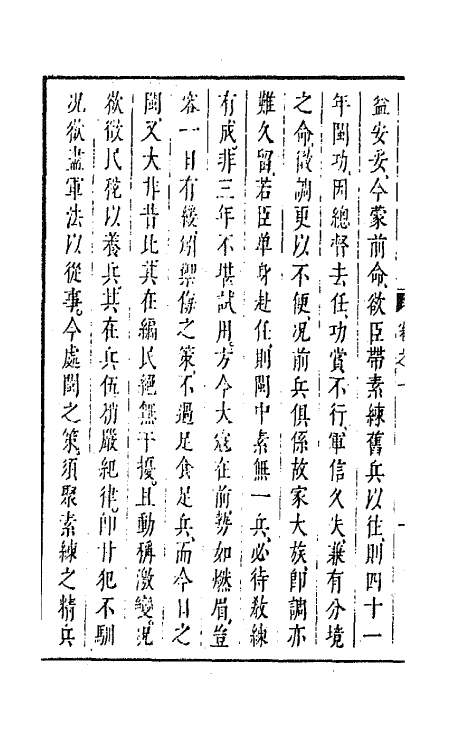 益安妥今蒙前命欲臣帶素練舊兵以往則四十一
年閩功因總督去任功賞不行軍信久失兼有分境
之命徵調更以不便况前兵俱係故家大族即調亦
難久留若臣单身赴任則閩中素無一兵必待教練
有成非三年不堪試用方今大寇在前勢如燃眉豈
容一日有緩須禦侮之策不過足食足兵而今日之
閩又大非昔比其在編民絕無干擾且動稱激變况
欲徵民稅以養兵其在兵伍稍嚴紀律即甘犯不馴
况欲盡軍法以從事今處閩之策須聚素練之精兵
卷之一